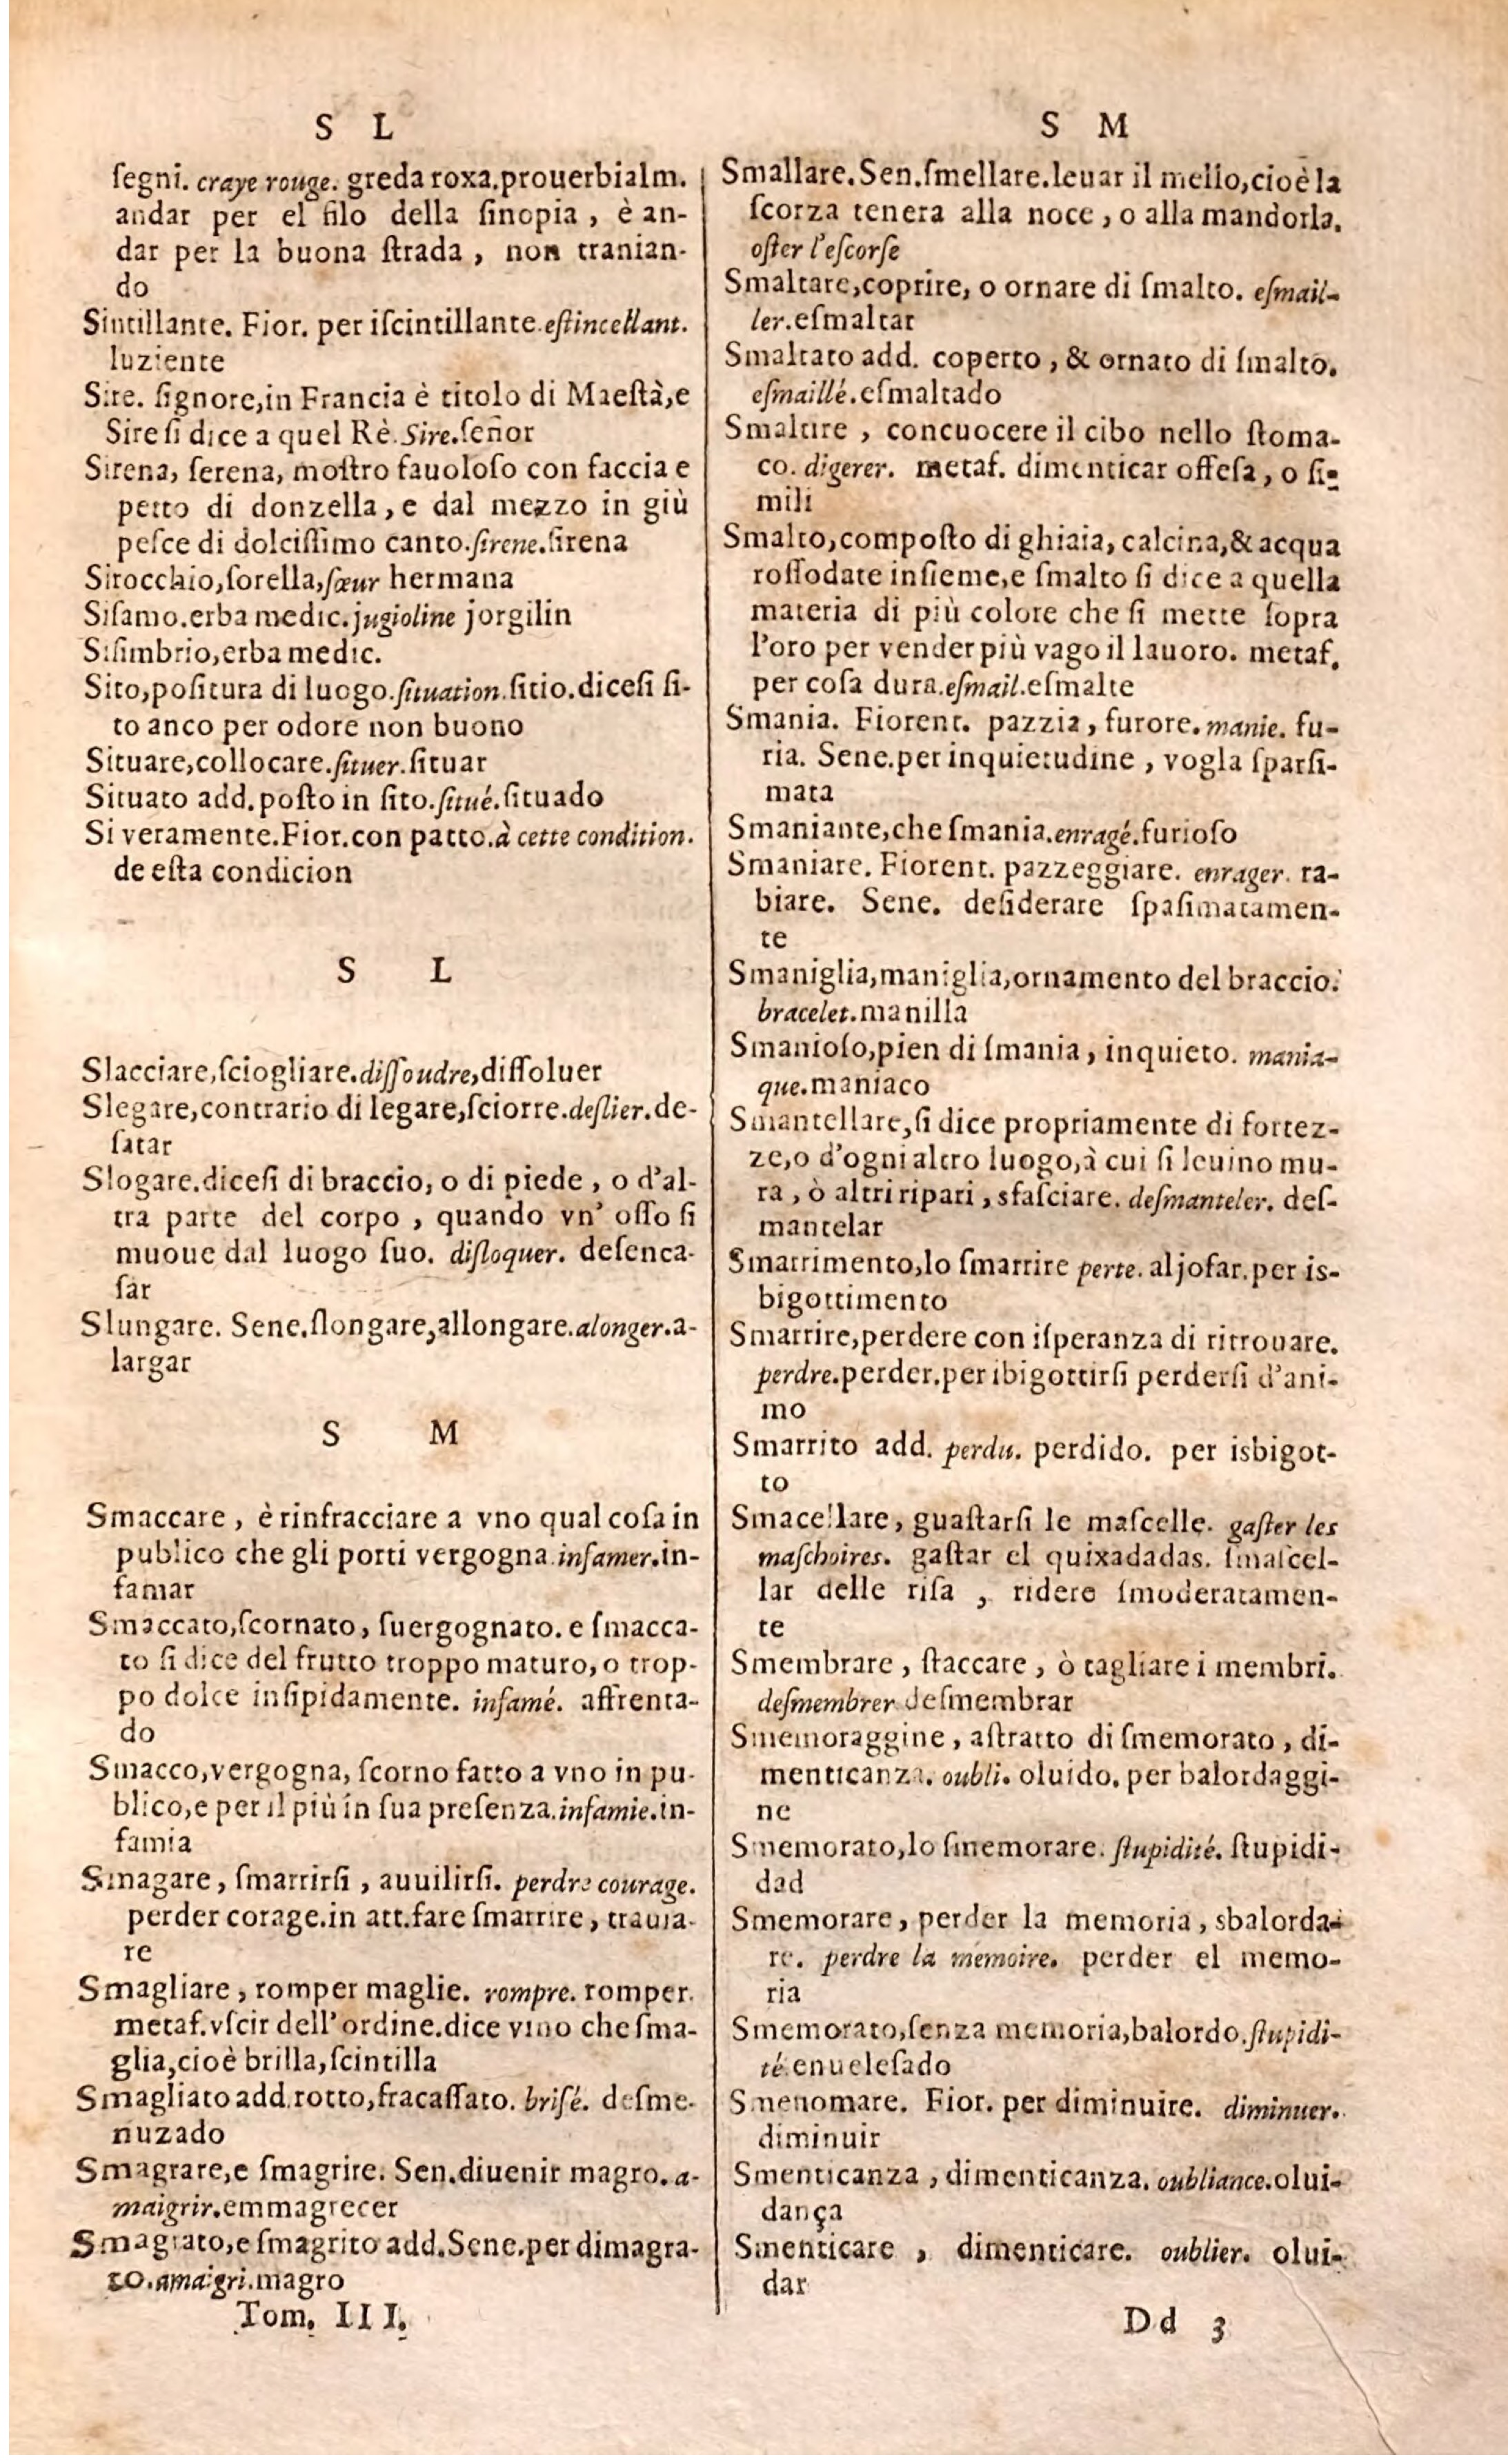 S L
ſegni. craye rouge. greda roxa.prouerbialm.
andar per el filo della ſinopia, è an-
dar per la buona ſtrada, non tranian-
do
Sintillante. Fior. per iſcintillante.eſtincellant.
luziente
Sire. ſignore,in Francia è titolo di Maeſtà,e
Sire ſi dice a quel Rè.Sire.ſeñor
Sirena, ſerena, moſtro fauoloſo con faccia e
petto di donzella, e dal mezzo in giù
peſce di dolciſſimo canto.ſirene.ſirena
Sirocchio,ſorella,ſœur hermana
Siſamo.erba medic.jugioline jorgilin
Siſimbrio,erba medic.
Sito,poſitura di luogo.ſituation.ſitio.diceſi ſi-
to anco per odore non buono
Situare,collocare.ſituer.ſituar
Situato add.poſto in ſito.ſitué.ſituado
Si veramente.Fior.con patto.à cette condition.
de eſta condicion
S L
Slacciare,ſciogliare.diſſoudre,diſſoluer
Slegare,contrario di legare,ſciorre.deſlier.de-
ſatar
Slogare.diceſi di braccio, o di piede, o d'al-
tra parte del corpo, quando vn' oſſo ſi
muoue dal luogo ſuo. diſloquer. deſenca-
ſar
Slungare. Sene.ſlongare,allongare.alonger.a-
largar
S M
Smaccare, è rinfracciare a vno qual coſa in
publico che gli porti vergogna.infamer.in-
famar
Smaccato,ſcornato, ſuergognato. e ſmacca-
to ſi dice del frutto troppo maturo, o trop-
po dolce inſipidamente. infamé. affrenta-
do
Smacco,vergogna, ſcorno fatto a vno in pu-
blico,e per il più in ſua preſenza.infamie.in-
famia
Smagare, ſmarrirſi, auuilirſi. perdre courage.
perder corage.in att.fare ſmarrire, trauia-
re
Smagliare, romper maglie. rompre. romper.
metaf.vſcir dell' ordine.dice vino che ſma-
glia,cioè brilla,ſcintilla
Smagliato add.rotto,fracaſſato. briſé. deſme-
nuzado
Smagrare,e ſmagrire. Sen.diuenir magro. a-
maigrir.emmagrecer
Smagrato,e ſmagrito add.Sene.per dimagra-
to.amaigri.magro
Tom. III.
S M
Smallare.Sen.ſmellare.leuar il mello,cioè la
ſcorza tenera alla noce, o alla mandorla.
oſter l'eſcorſe
Smaltare,coprire, o ornare di ſmalto. eſmail-
ler.eſmaltar
Smaltato add. coperto, & ornato di ſmalto.
eſmaillé.eſmaltado
Smaltire, concuocere il cibo nello ſtoma-
co. digerer. metaf. dimenticar offeſa, o ſi-
mili
Smalto,compoſto di ghiaia, calcina,& acqua
roſſodate inſieme,e ſmalto ſi dice a quella
materia di più colore che ſi mette ſopra
l'oro per vender più vago il lauoro. metaf.
per coſa dura.eſmail.eſmalte
Smania. Fiorent. pazzia, furore.manie. fu-
ria. Sene.per inquietudine, vogla ſparſi-
mata
Smaniante,che ſmania.enragé.furioſo
Smaniare. Fiorent. pazzeggiare. enrager. ra-
biare. Sene. deſiderare ſpaſimatamen-
te
Smaniglia,maniglia,ornamento del braccio.
bracelet.manilla
Smanioſo,pien di ſmania, inquieto. mania-
que.maniaco
Smantellare,ſi dice propriamente di fortez-
ze,o d'ogni altro luogo,à cui ſi leuino mu-
ra, ò altri ripari, sfaſciare. deſmanteler. deſ-
mantelar
Smarrimento,lo ſmarrire perte. aljofar.per is-
bigottimento
Smarrire,perdere con iſperanza di ritrouare.
perdre.perder.per ibigottirſi perderſi d'ani-
mo
Smarrito add. perdu. perdido. per isbigot-
to
Smacellare, guaſtarſi le maſcelle. gaſter les
maſchoires. gaſtar el quixadadas. ſmaſcel-
lar delle riſa, ridere ſmoderatamen-
te
Smembrare, ſtaccare, ò tagliare i membri.
deſmembrer deſmembrar
Smemoraggine, aſtratto di ſmemorato, di-
menticanza. oubli. oluido. per balordaggi-
ne
Smemorato,lo ſmemorare. ſtupidité. ſtupidi-
dad
Smemorare, perder la memoria, sbalorda-
re. perdre la memoire. perder el memo-
ria
Smemorato,ſenza memoria,balordo.ſtupidi-
té.enueleſado
Smenomare. Fior. per diminuire. diminuer.
diminuir
Smenticanza, dimenticanza. oubliance.olui-
dança
Smenticare, dimenticare. oublier. olui-
dar
Dd 3